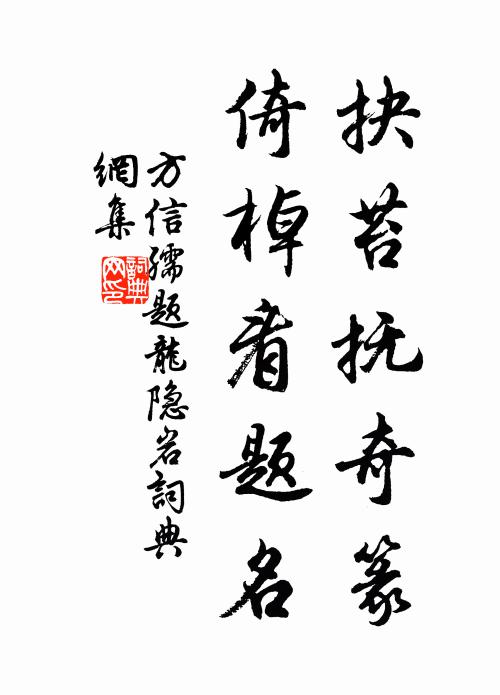 抉苔抚奇篆
倚棹看题名
方信孺题龍隐岩詞典
網集
詞典網印